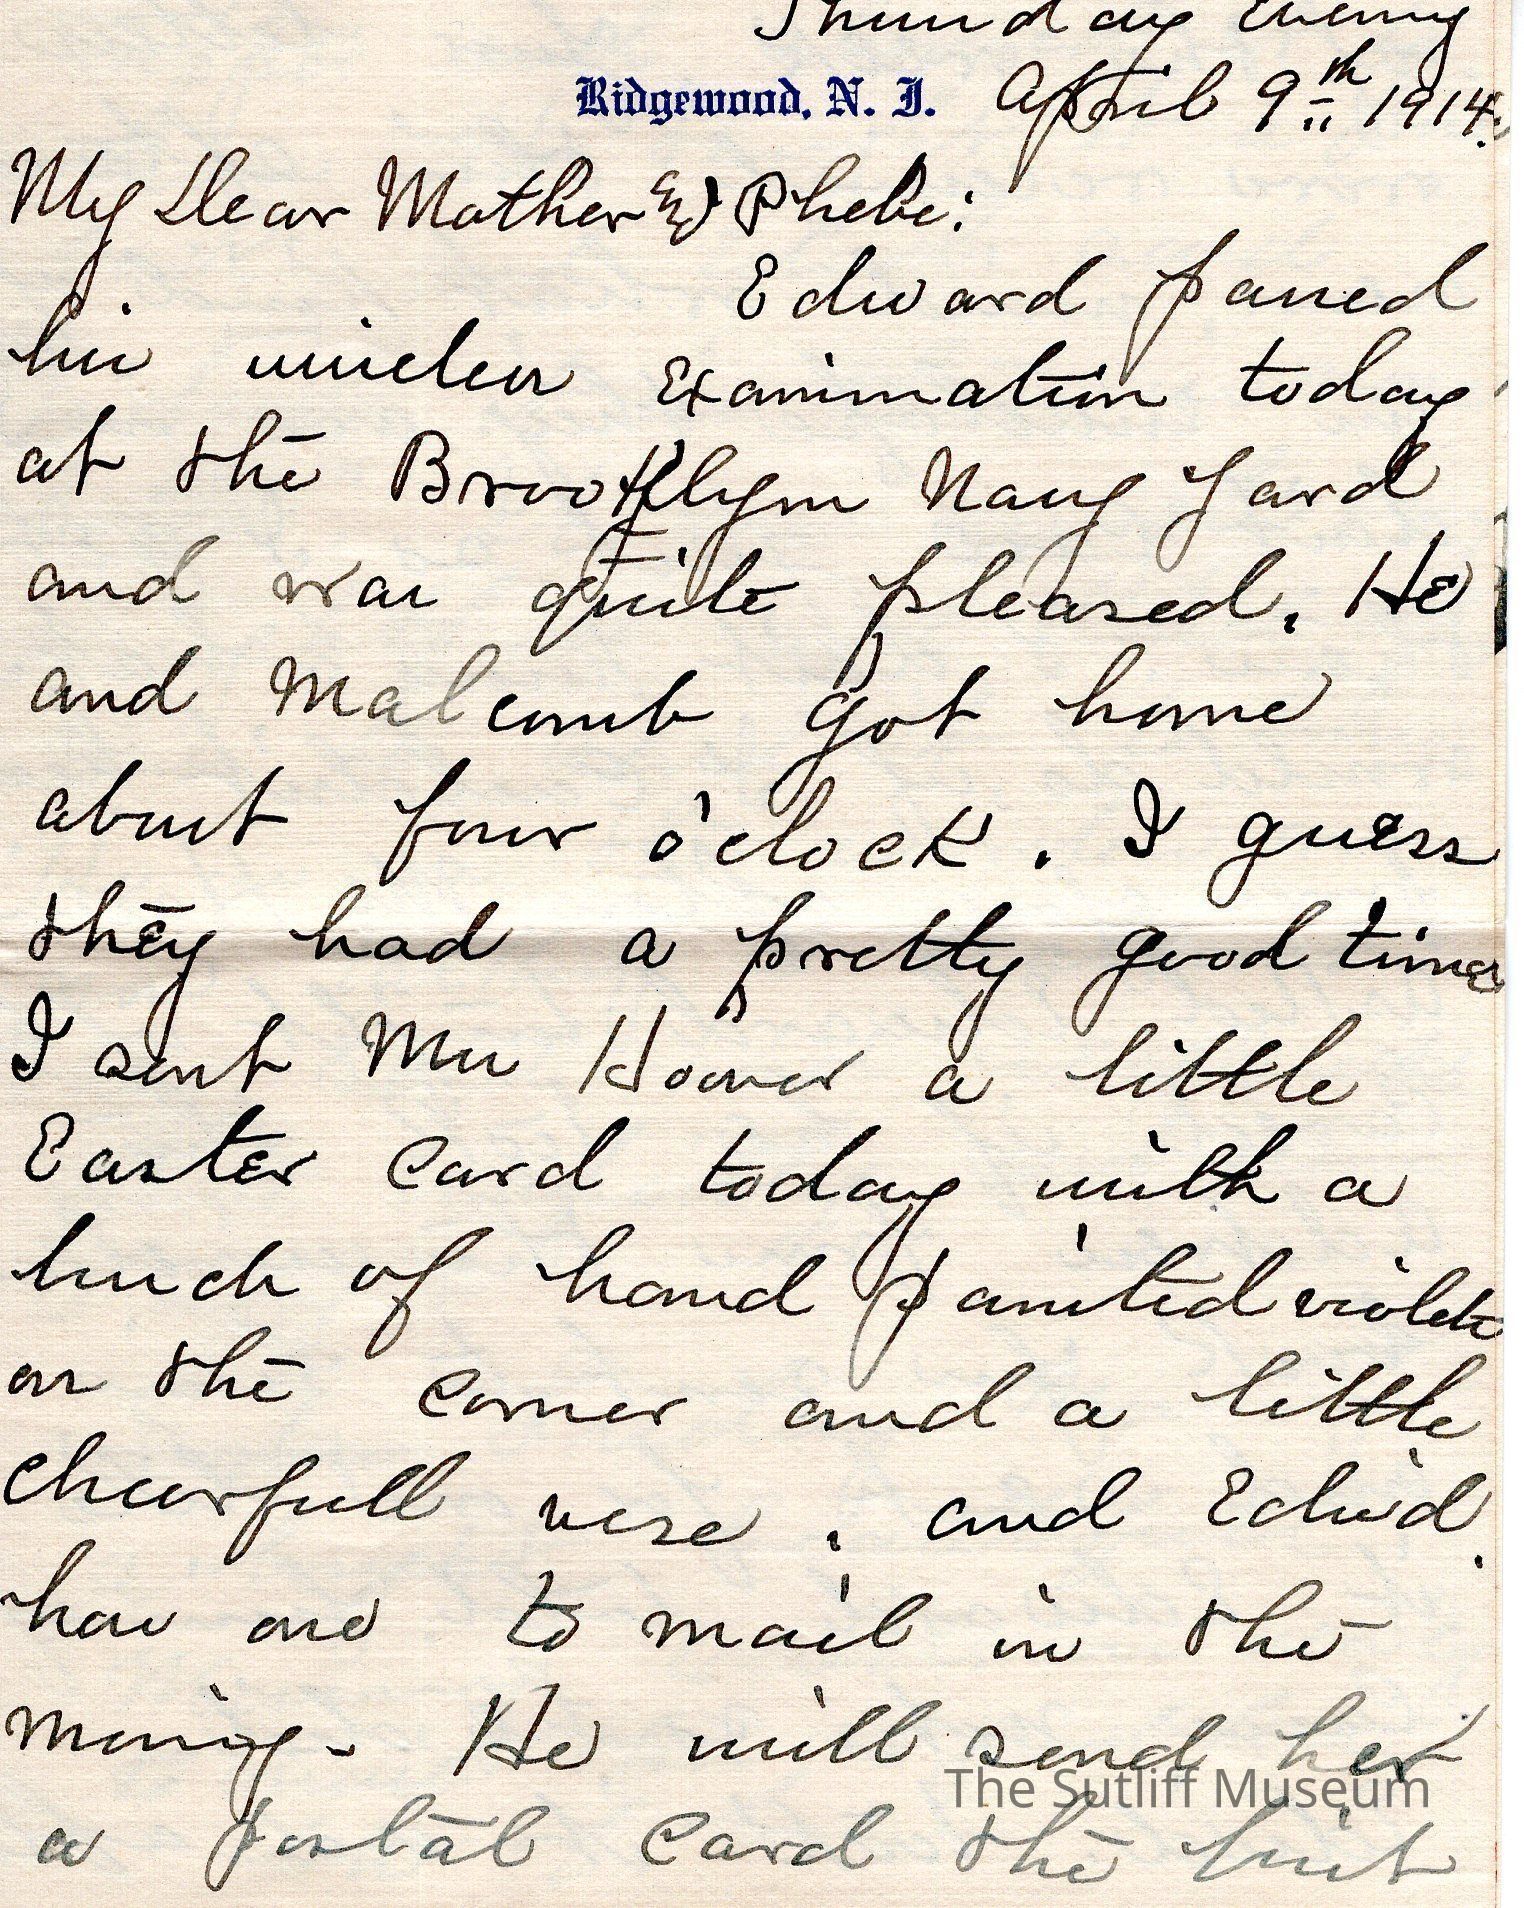 Thursday Evening
Ridgewood, N. J. April 9th 1914.
My Dear Mother & Phebe:
Edward passed
his wireless examination today
at the Brooklyn Navy Yard
and was quite pleased. He
and Malcomb got home
about four o'clock. I guess
they had a pretty good time
I sent Mrs Hoover a little
Easter card today with a
bunch of hand painted violets
on the corner and a little
cheerfull verse, and Edw'd.
has one to mail in the
morning - He will send her
a postal card the first
The Sutliff Museum